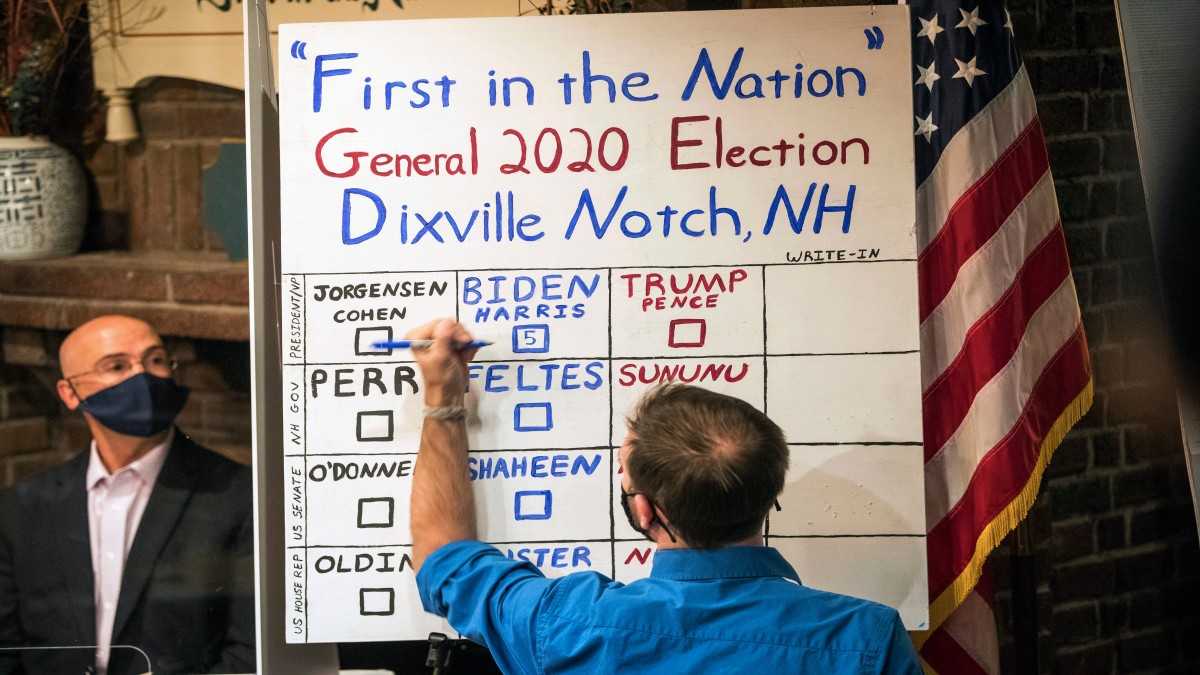 "First in the Nation"
General 2020 Election
Dixville Notch, NH
WRITE-IN
PRESIDENT/VP
JORGENSEN BIDEN TRUMP
COHEN HARRIS PENCE
5
NH GOV
PERR FELTES SUNUNU
US SENATE
O'DONNE SHAHEEN
US HOUSE REP
OLDIN STER N